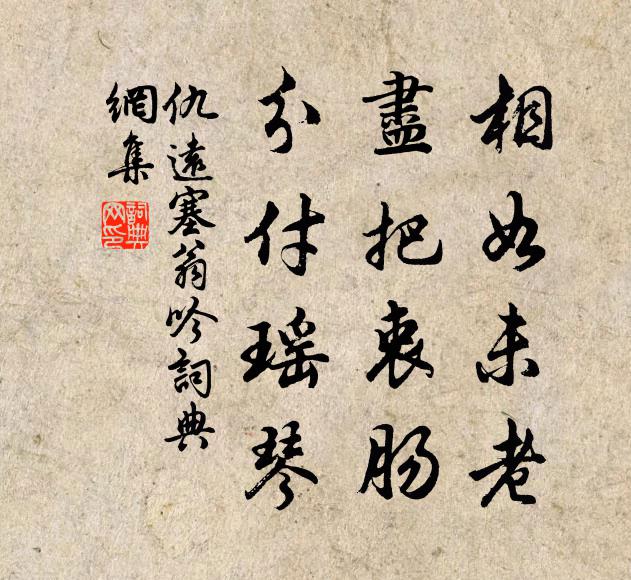 相如未老
盡把衷肠
分付瑶琴
仇遠塞翁吟詞典
網集
詞典
网印